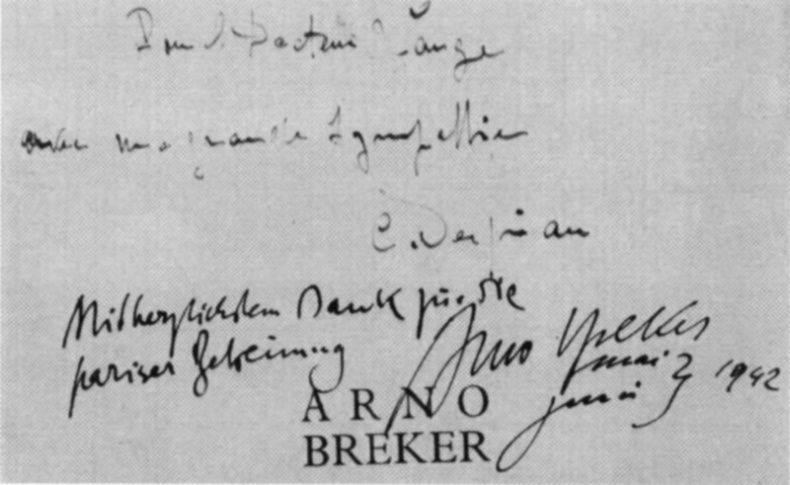 Pour le Docteur Lange
avec ma grande sympathie
C. Despiau
Mit herzlichstem Dank für die
pariser Betreuung
Arno Breker
mai
juni 1942
ARNO
BREKER